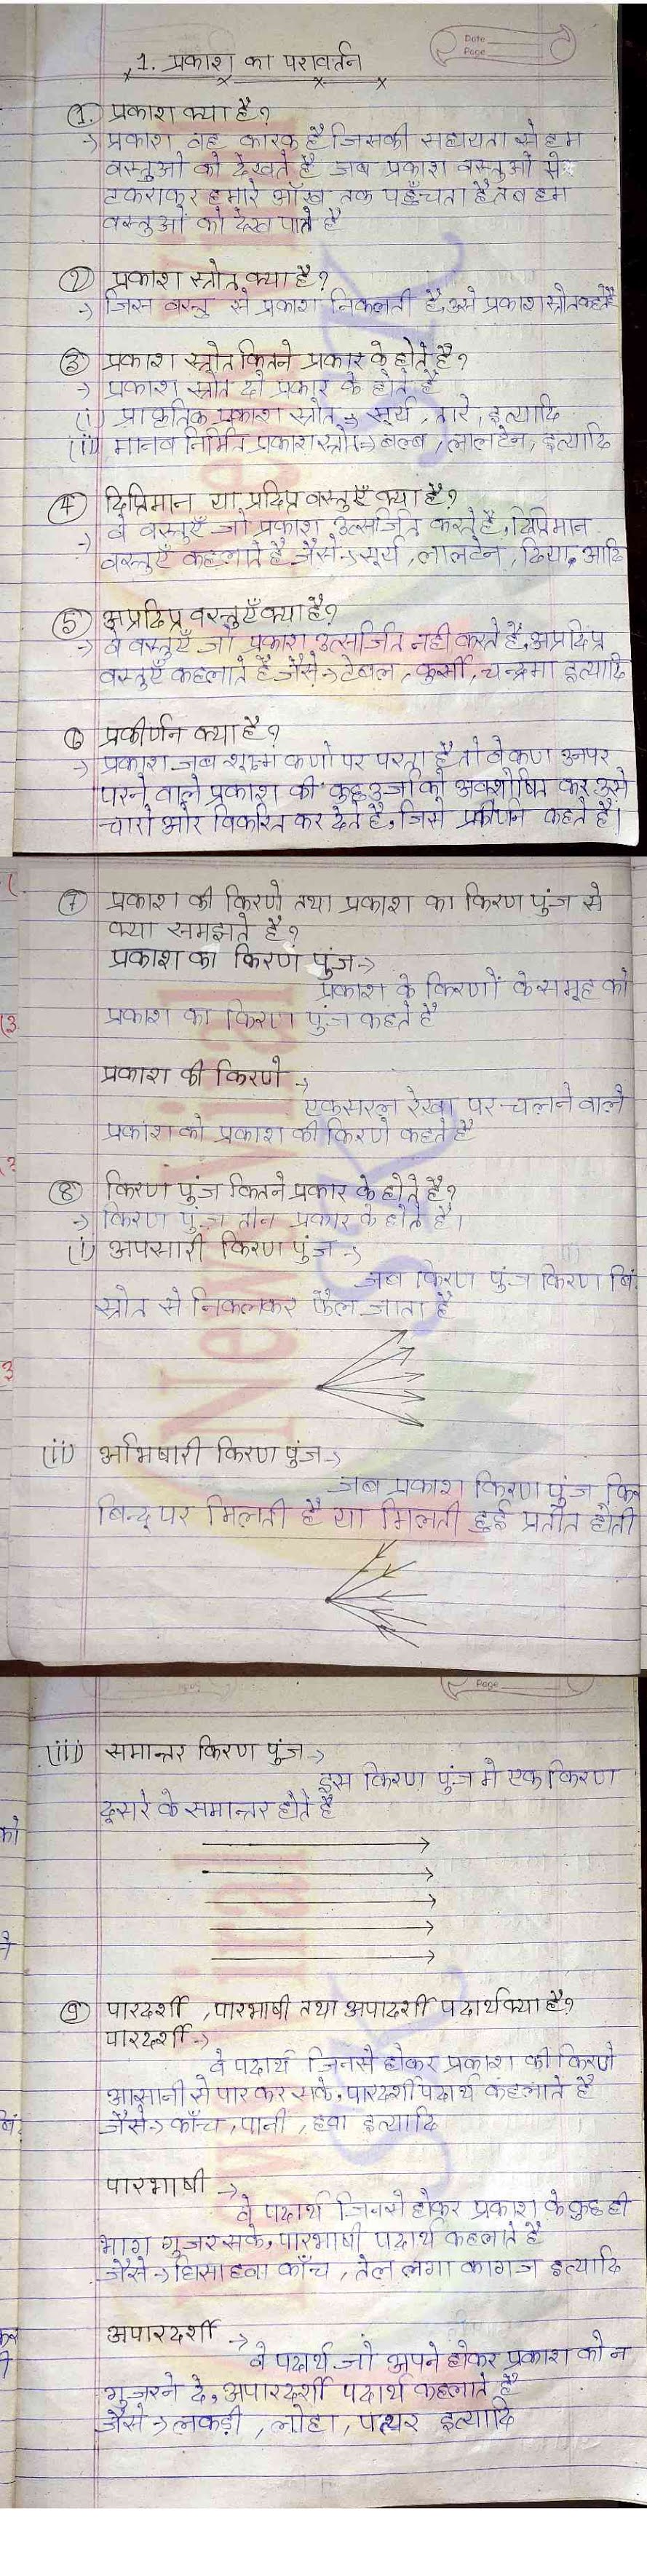 Date
Page
1. प्रकाश का परावर्तन
① प्रकाश क्या है?
→ प्रकाश वह कारक है जिसकी सहायता से हम
वस्तुओं को देखते है जब प्रकाश वस्तुओं से
टकराकर हमारे आँख तक पहुँचता है तब हम
वस्तुओं को देख पाते है
② प्रकाश स्त्रोत क्या है?
→ जिस वस्तु से प्रकाश निकलती है, उसे प्रकाश स्त्रोत कहते है
③ प्रकाश स्त्रोत कितने प्रकार के होते है?
→ प्रकाश स्त्रोत दो प्रकार के होते है
(i) प्राकृतिक प्रकाश स्त्रोत → सूर्य, तारे, इत्यादि
(ii) मानव निर्मित प्रकाश स्त्रोत → बल्ब, लालटेन, इत्यादि
④ दिप्तिमान या प्रदिप्त वस्तुएँ क्या है?
→ वे वस्तुएँ जो प्रकाश उत्सर्जित करते है, दिप्तिमान
वस्तुएँ कहलाते है जैसे → सूर्य, लालटेन, दिया, आदि
⑤ अप्रदिप्त वस्तुएँ क्या है?
→ वे वस्तुएँ जो प्रकाश उत्सर्जित नही करते है, अप्रदिप्त
वस्तुएँ कहलाते है जैसे → टेबल, कुर्सी, चन्द्रमा इत्यादि
⑥ प्रकीर्णन क्या है?
→ प्रकाश जब शूक्ष्म कणो पर परता है तो वे कण उनपर
परने वाले प्रकाश की कुछ उर्जा को अवशोषित कर उसे
चारो ओर विकरित कर देते है, जिसे प्रकीर्णन कहते है।
⑦ प्रकाश की किरणे तथा प्रकाश का किरण पुंज से
क्या समझते है?
प्रकाश का किरण पुंज →
प्रकाश के किरणों के समूह को
प्रकाश का किरण पुंज कहते है
प्रकाश की किरणे →
एक सरल रेखा पर चलने वाले
प्रकाश को प्रकाश की किरणे कहते है
⑧ किरण पुंज कितने प्रकार के होते है?
→ किरण पुंज तीन प्रकार के होते है।
(i) अपसारी किरण पुंज →
जब किरण पुंज किरण बिं
स्त्रोत से निकलकर फैल जाता है
(ii) अभिषारी किरण पुंज →
जब प्रकाश किरण पुंज
बिन्दु पर मिलती है या मिलती हुई प्रतीत होती
Page
(iii) समान्तर किरण पुंज →
इस किरण पुंज मे एक किरण
दूसरे के समान्तर होते है
⑨ पारदर्शी, पारभाषी तथा अपादर्शी पदार्थ क्या है?
पारदर्शी →
वे पदार्थ जिनसे होकर प्रकाश की किरणे
आसानी से पार कर सके, पारदर्शी पदार्थ कहलाते है
जैसे → काँच, पानी, हवा इत्यादि
पारभाषी →
वे पदार्थ जिनसे होकर प्रकाश के कुछ ही
भाग गुजर सके, पारभाषी पदार्थ कहलाते है
जैसे → घिसा हवा काँच, तेल लगा कागज इत्यादि
अपारदर्शी →
वे पदार्थ जो अपने होकर प्रकाश को न
गुजरने दे, अपारदर्शी पदार्थ कहलाते है
जैसे → लकड़ी, लोहा, पत्थर इत्यादि